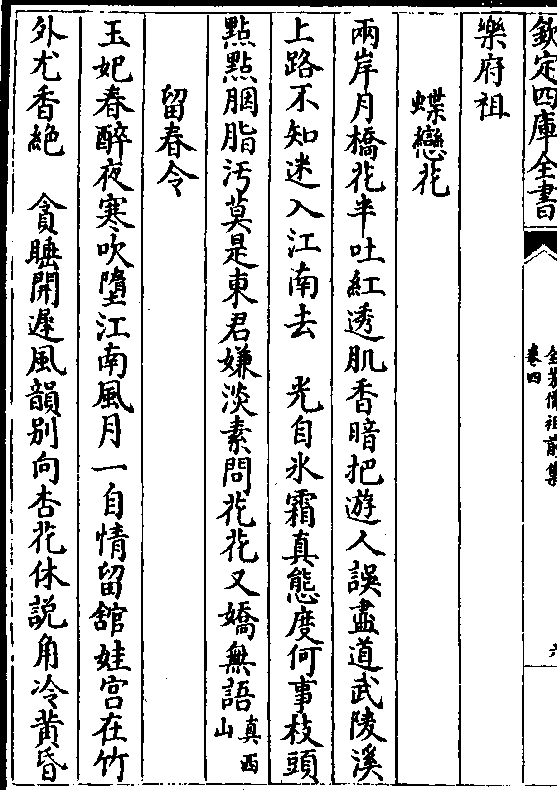 欽定四庫全書
全芳備祖前集
卷四
樂府祖
蝶戀花
兩岸月橋花半吐紅透肌香暗把遊人誤盡道武陵溪
上路不知迷入江南去　光自氷霜真態度何事枝頭
點點胭脂汚莫是東君嫌淡素問花花又嬌無語真西山
留春令
玉妃春醉夜寒吹墮江南風月一自情留舘娃宫在竹
外尤香絶　貪睡開遲風韻别向杏花休説角冷黄昏